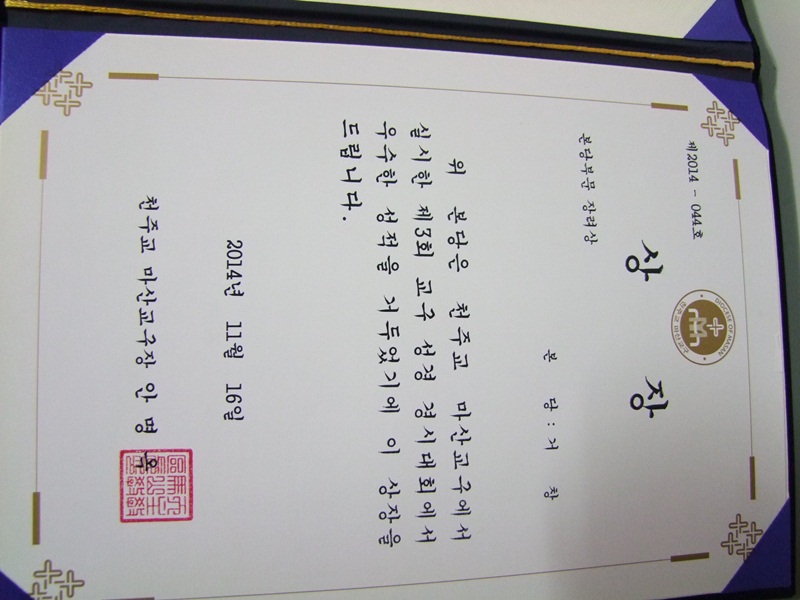 제2014 - 044호
DIOCESE OF MASAN
천주교 마산교구
상 장
본당부문 장려상
본 당 : 거 창
위 본당은 천주교 마산교구에서
실시한 제3회 교구 성경 경시대회에서
우수한 성적을 거두었기에 이 상장을
드립니다.
2014년 11월 16일
천주교 마산교구장 안 명 옥